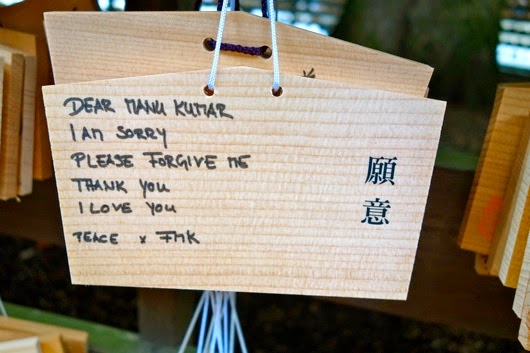 DEAR MANU KUMAR
I AM SORRY
PLEASE FORGIVE ME
THANK YOU
I LOVE YOU
PEACE x FMK
願意